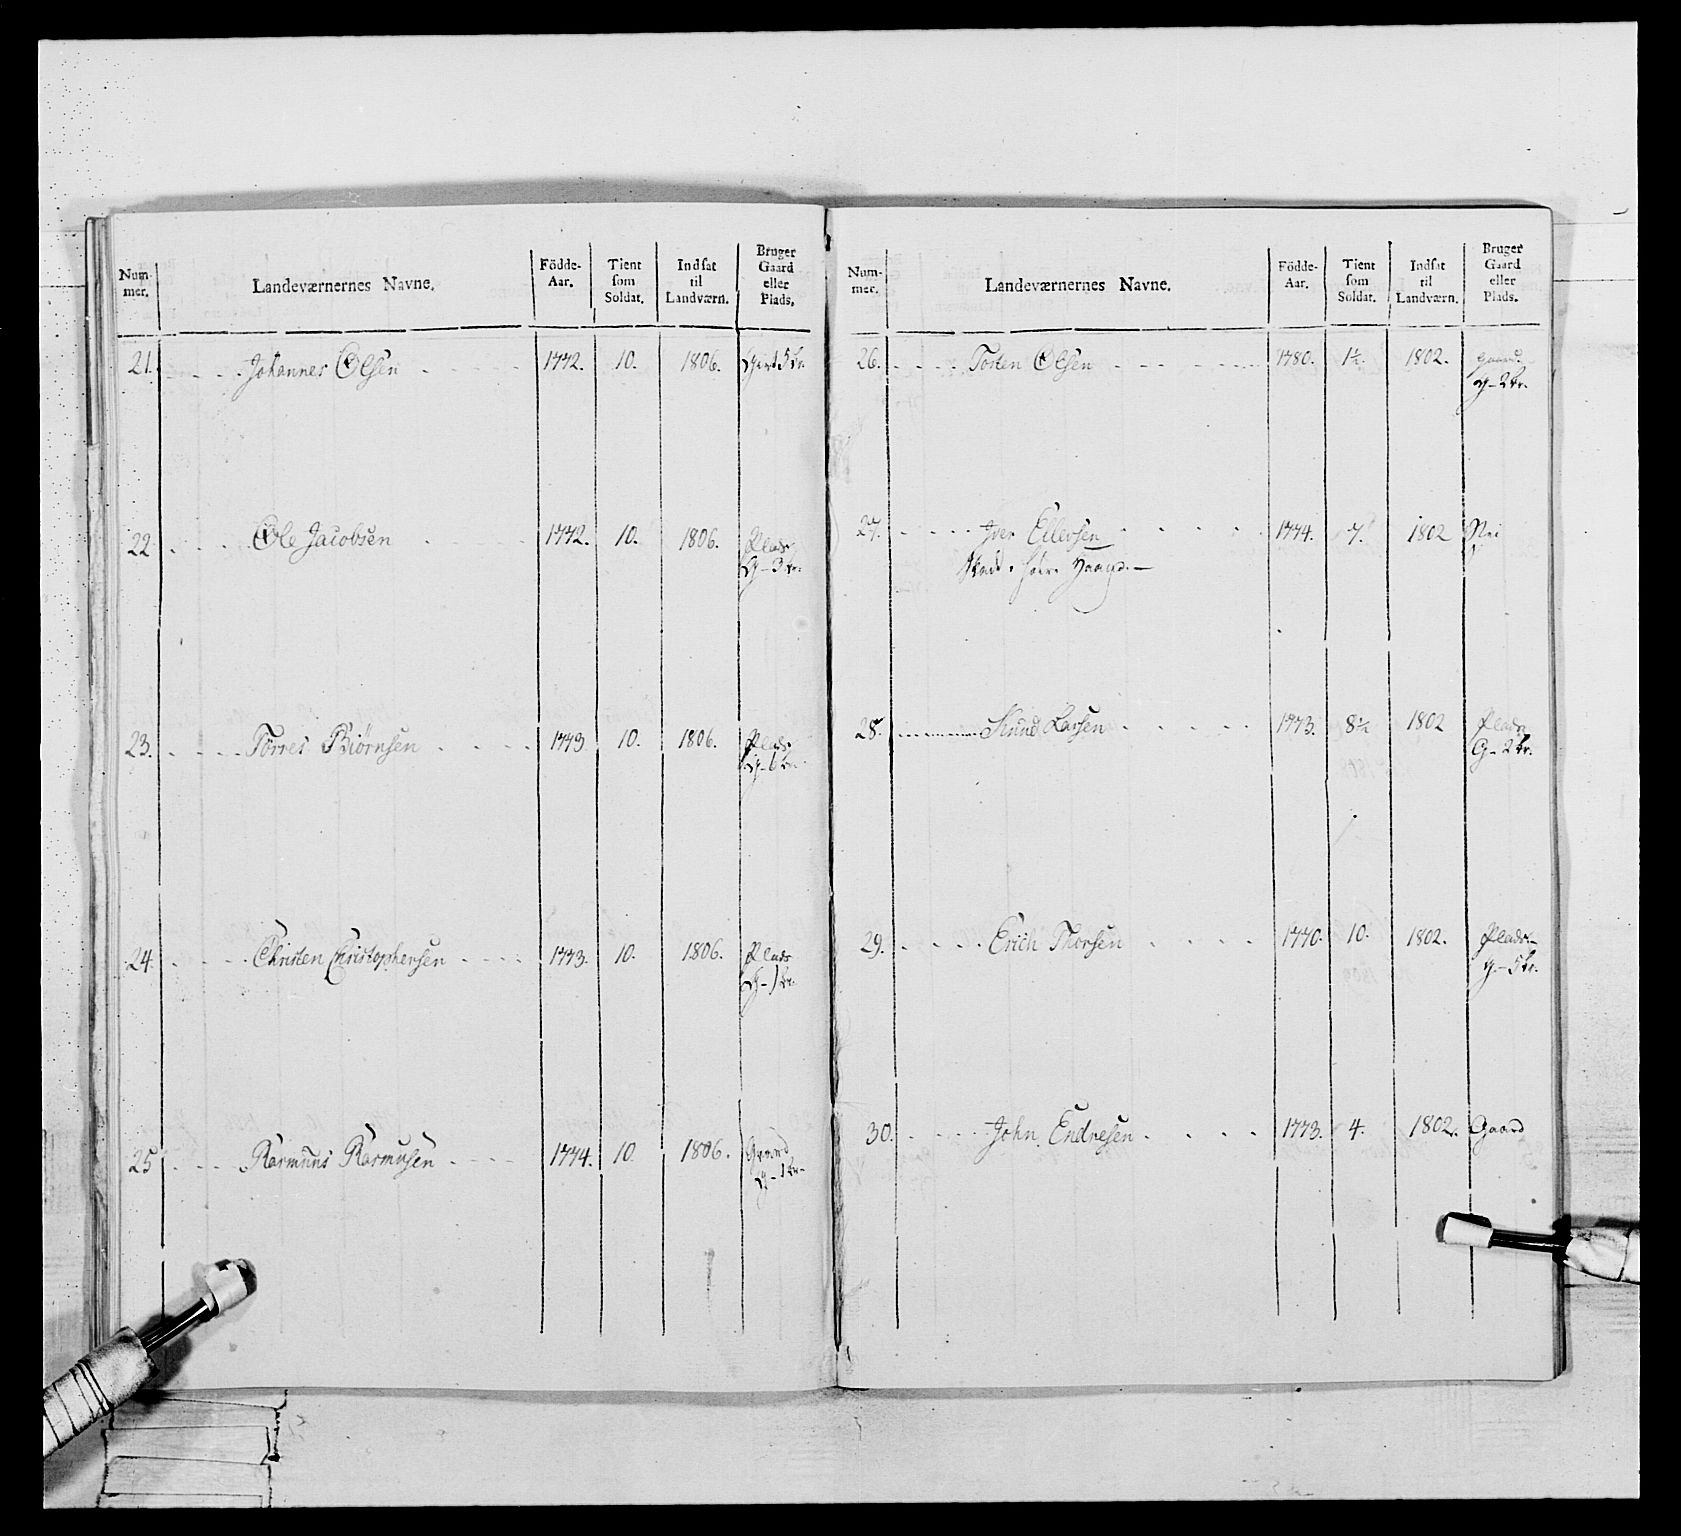 Num-
mer.
Landeværnernes Navne.
Födde-
Aar.
Tient
som
Soldat.
Indsat
til
Landværn.
Bruger
Gaard
eller
Plads.
21. Johannes Olsen 1772. 10. 1806.
22 Ole Jacobsen 1772. 10. 1806. Plads
G - 3
23. Törres Biörnsen 1773 10. 1806. Plads
24. Christen Christophersen 1773. 10. 1806. Plads
G - 1
25 Rasmus Rasmusen 1774. 10. 1806. Gaard
G - 1
Num-
mer.
Landeværnernes Navne.
Födde-
Aar.
Tient
som
Soldat.
Indsat
til
Landværn.
Bruger
Gaard
eller
Plads.
26. Tosten Olsen 1780. 1½. 1802. Gaard
G - 2
27. Iver Ellevsen 1774. 7. 1802 Nei
28. Knud Larsen 1773. 8½ 1802 Plads
G - 2
29. Erich Thorsen 1770. 10. 1802. Plads
G - 5
30. John Endresen 1773. 4. 1802. Gaard